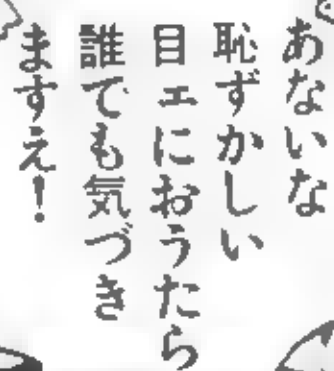 あないな
恥ずかしい
目ェにおうたら
誰でも気づき
ますえ!